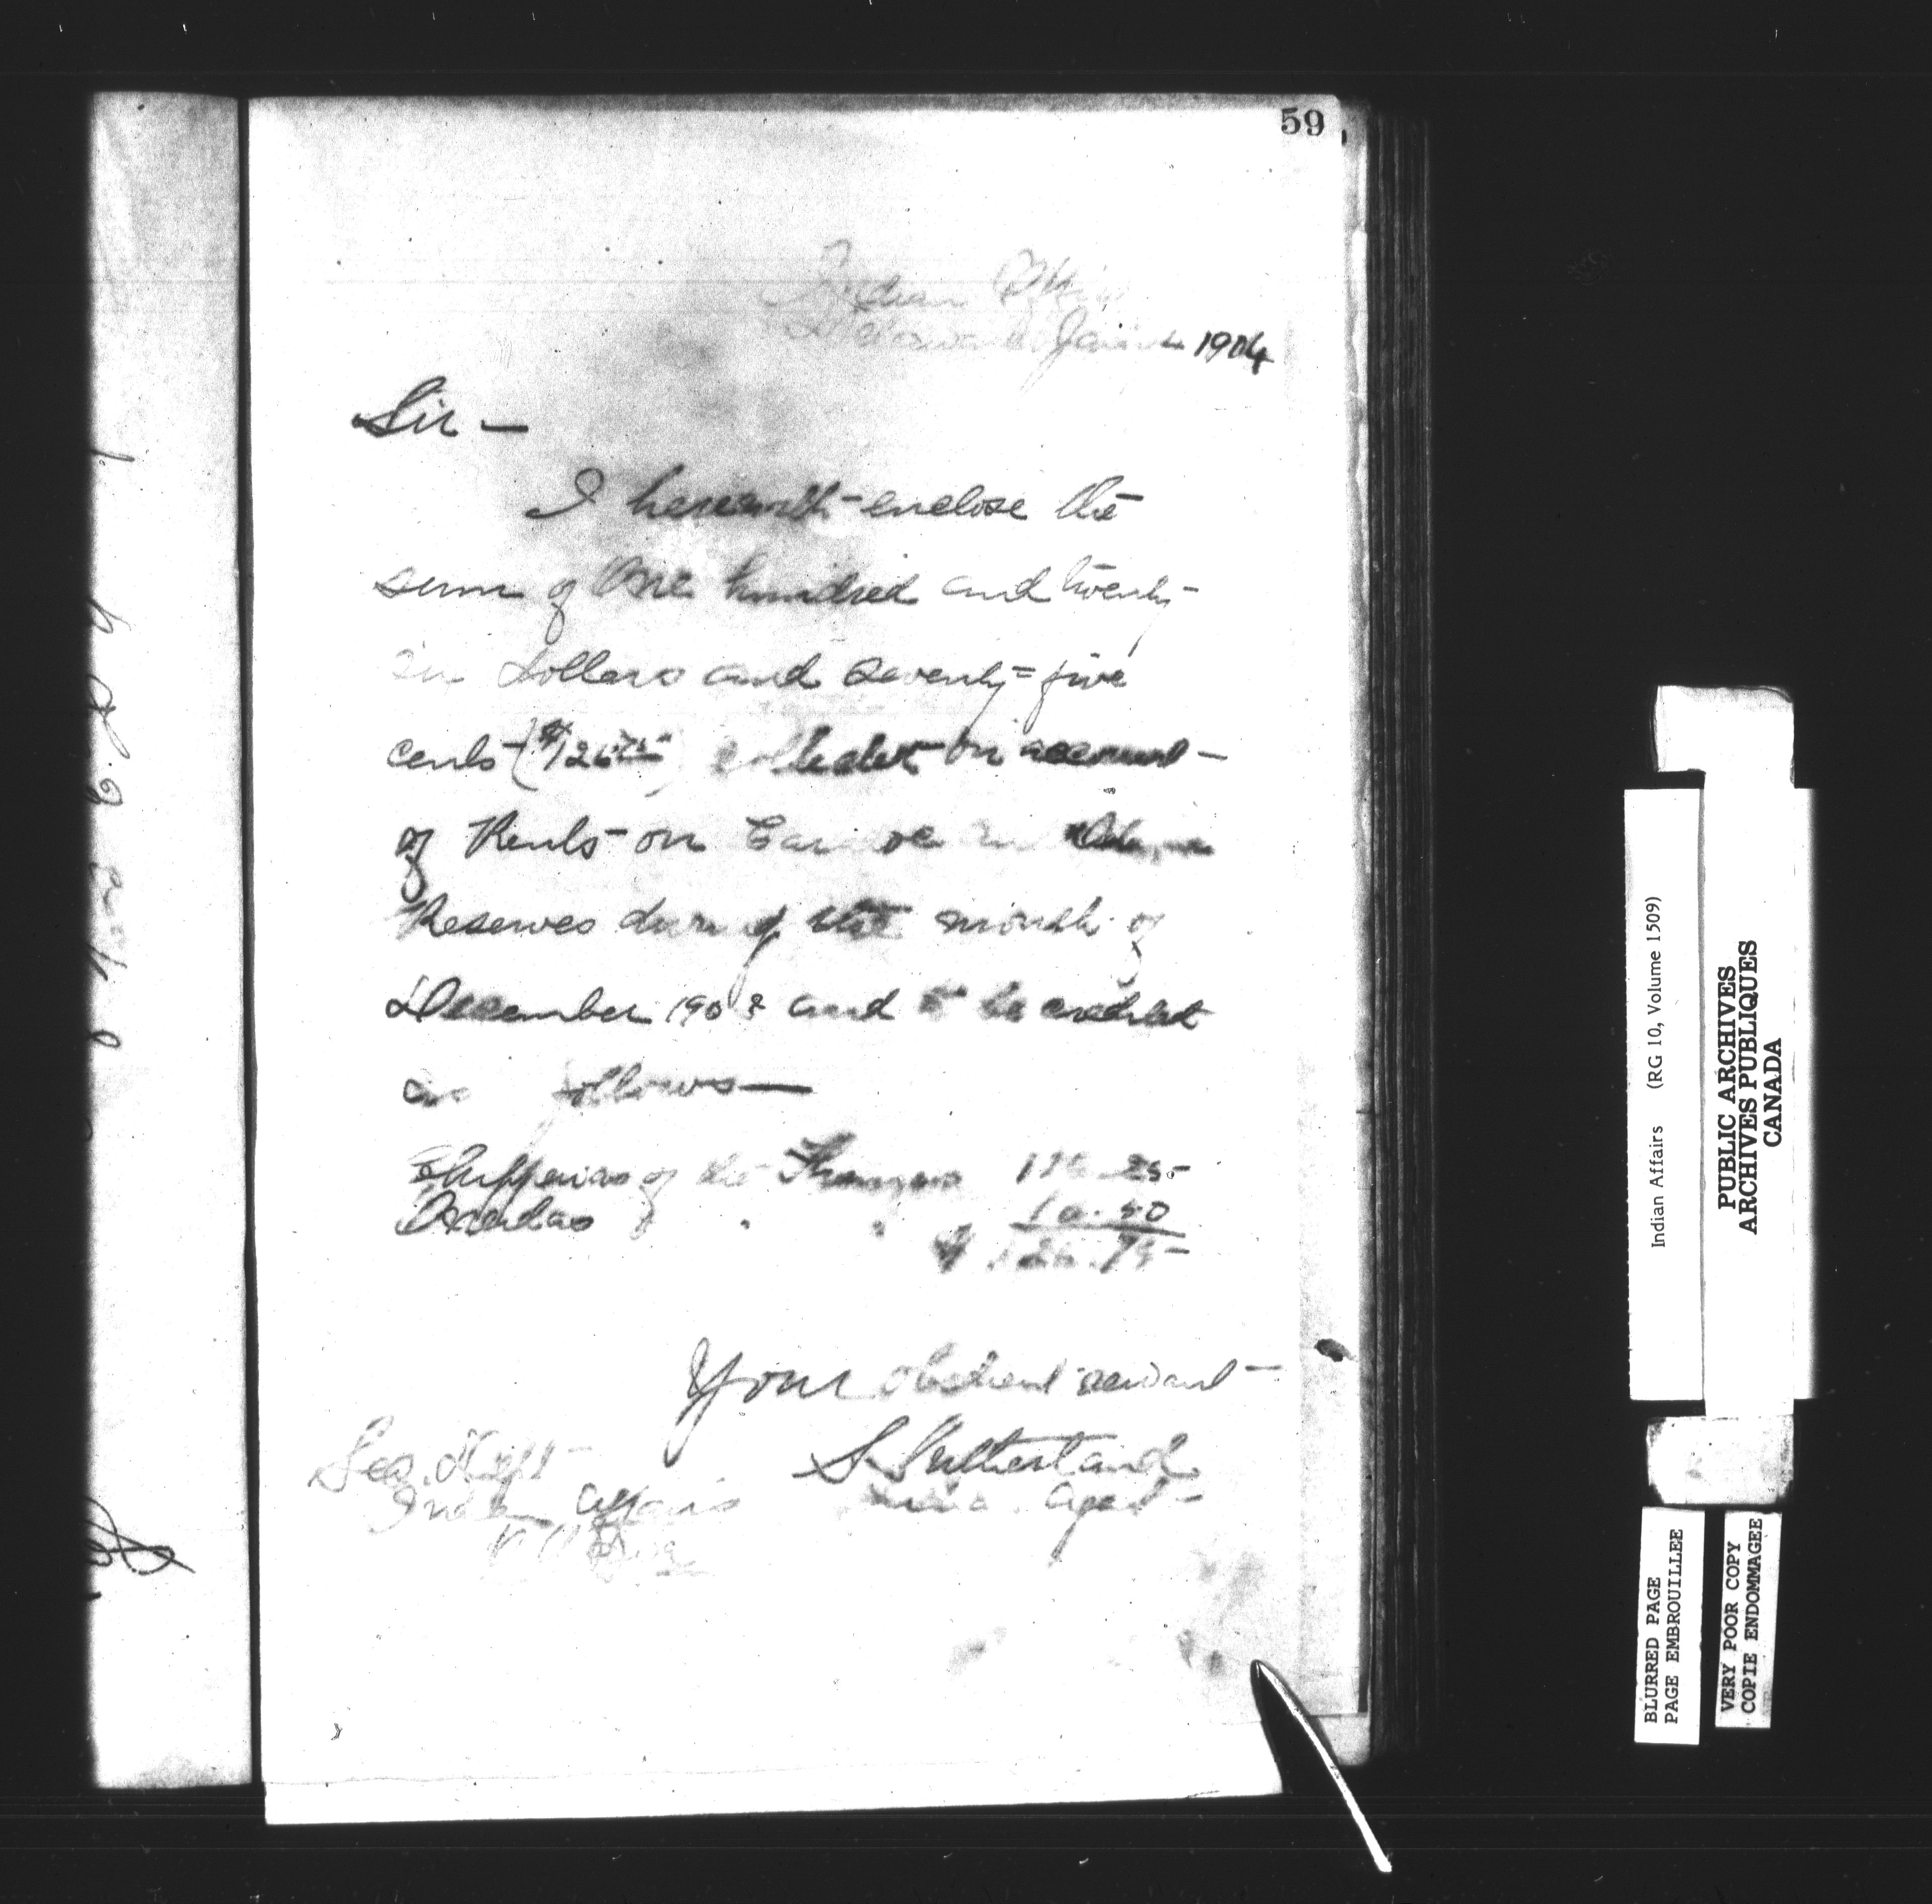 59
Indian Office
Delaware Jan 4 1904
Sir —
I herewith enclose the
sum of One hundred and twenty-
six dollars and seventy-five
cents ($126.75) collected on account
of Rents on Caradoc and
Reserves during the month of
December 1903 and to be credited
as follows —
Chippewas of the Thames 116.25
Oneidas " " 10.50
$ 126.75
Your obedient servant
S. Sutherland
Indian Agent
Indian Affairs
Indian Affairs (RG 10, Volume 1509)
PUBLIC ARCHIVES
ARCHIVES PUBLIQUES
CANADA
BLURRED PAGE
PAGE EMBROUILLEE
VERY POOR COPY
COPIE ENDOMMAGEE